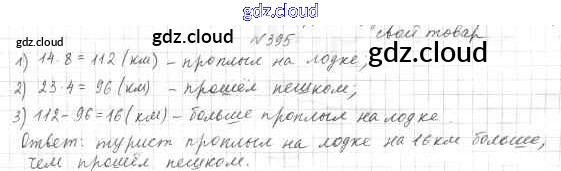 gdz.cool
gdz.cool
№395 свой товар
1) 14·8=112 (км) – проплыл на лодке;
gdz.cool
gdz.cool
2) 23·4=96 (км) – прошёл пешком;
3) 112-96=16(км) – больше проплыл на лодке.
Ответ: турист проплыл на лодке на 16км больше,
чем прошёл пешком.
gdz.cool
gdz.cool